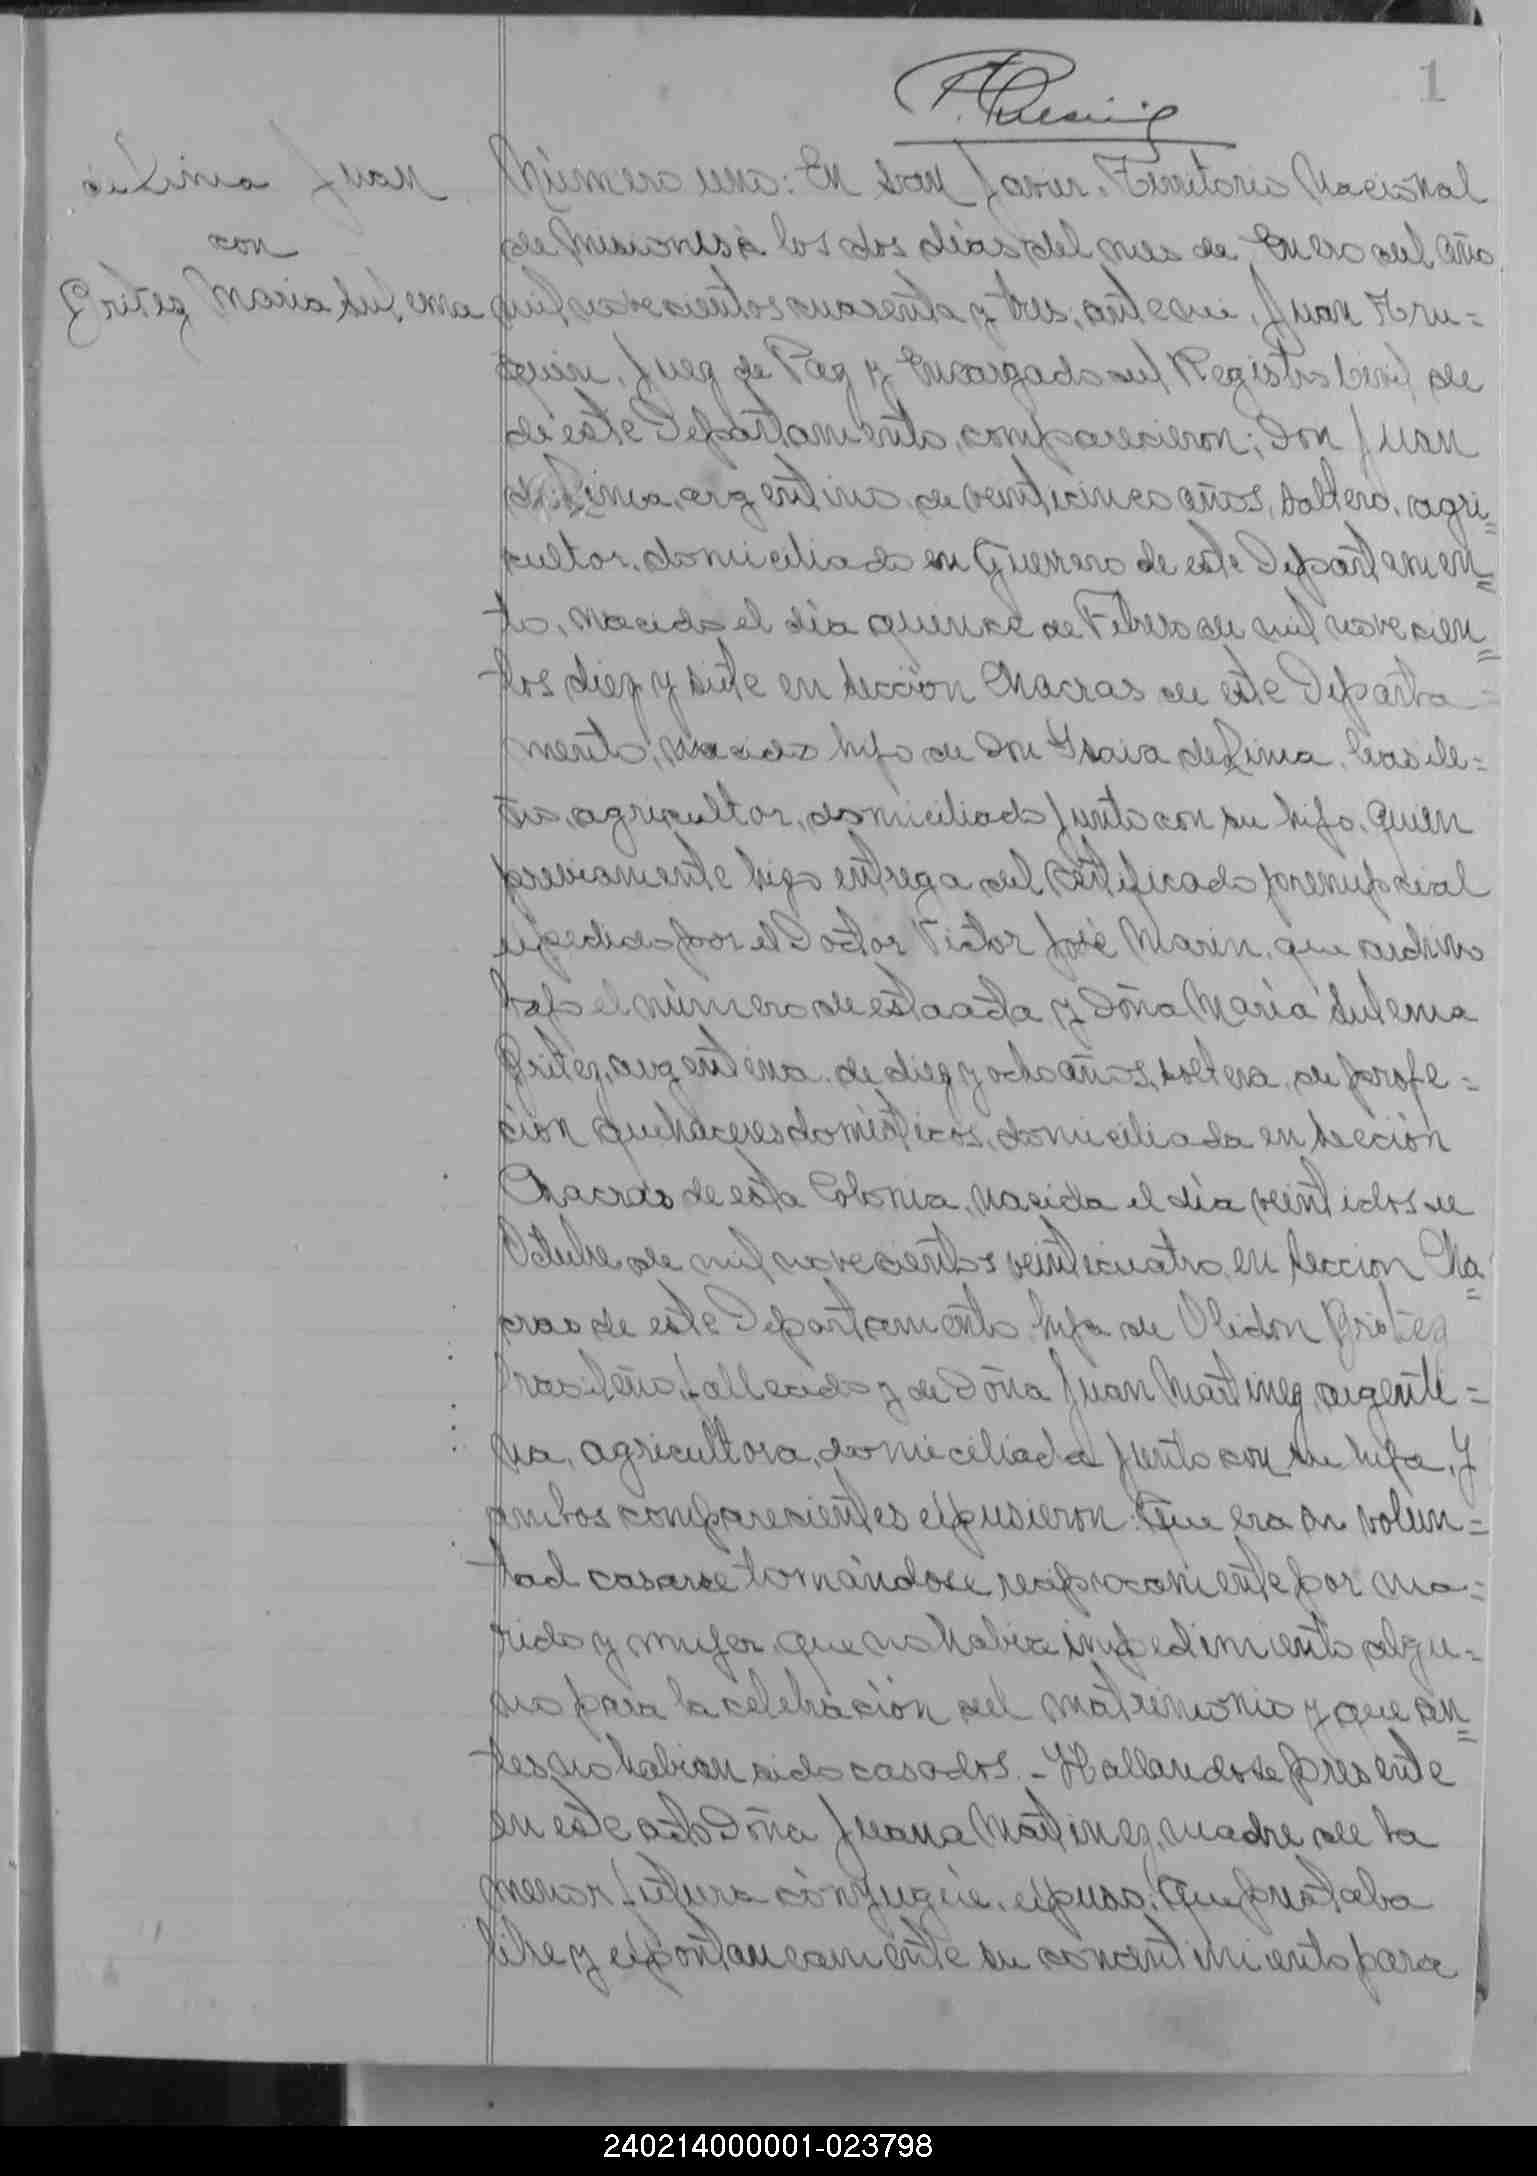 1
Juan Lima
con
Gritez Maria Sulema
Número uno: En San Javier, Territorio Nacional
de Misiones á los dos dias del mes de Enero del año
mil novecientos cuarenta y tres, ante mi, Juan
Juez de Paz y Encargado del Registro Civil de
de este Departamento, comparecieron; Don Juan
de Lima, argentino, de veinticinco años, soltero, agri=
cultor, domiciliado en Guerrero de este Departamen=
to, nacido el día quince de Febrero de mil novecien=
tos diez y siete en Sección Chacras de este Departa=
mento, hijo de Don Isaia de Lima, brasile=
ño, agricultor, domiciliado junto con su hijo, quien
previamente hizo entrega del Certificado prenupcial
expedido por el Doctor Victor José Marin, que archivo
bajo el número de esta acta y Doña María Sulema
Gritez, argentina, de diez y ocho años, soltera, de profe=
cion quehaceres domésticos, domiciliada en Sección
Chacras de esta Colonia, nacida el día veintidos de
Octubre de mil novecientos veinticuatro, en Seccion Cha=
cras de este Departamento hija de Olidon Gritez
brasileño, fallecido y de Doña Juan Martinez, argenti=
na, agricultora, domiciliada junto con su hija, y
ambos comparecientes expusieron: Que era su volun=
tad casarse tomándose reciprocamente por ma=
rido y mujer, que no habia impedimento algu=
no para la celebración del matrimonio y que an=
tes no habian sido casados. - Hallandose presente
en este acto Doña Juana Martinez, madre de la
menor futura cónyugue, expuso: Que prestaba
libre y expontaneamente su consentimiento para
240214000001-023798